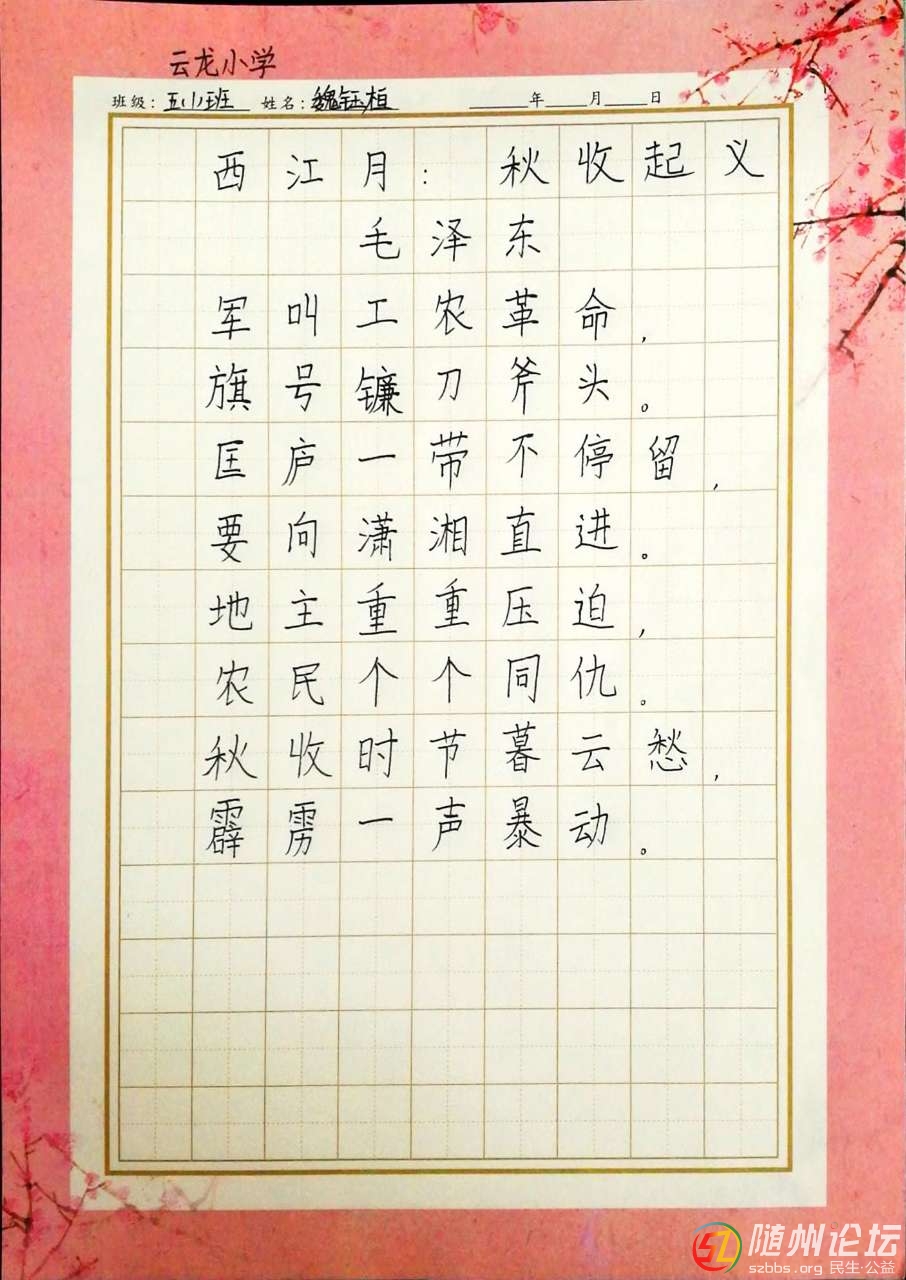 云龙小学
班级：五(1)班 姓名：魏钰桓 年 月 日
西江月：秋收起义
毛泽东
军叫工农革命，
旗号镰刀斧头。
匡庐一带不停留，
要向潇湘直进。
地主重重压迫，
农民个个同仇。
秋收时节暮云愁，
霹雳一声暴动。
随州论坛
szbbs.org 民生·公益